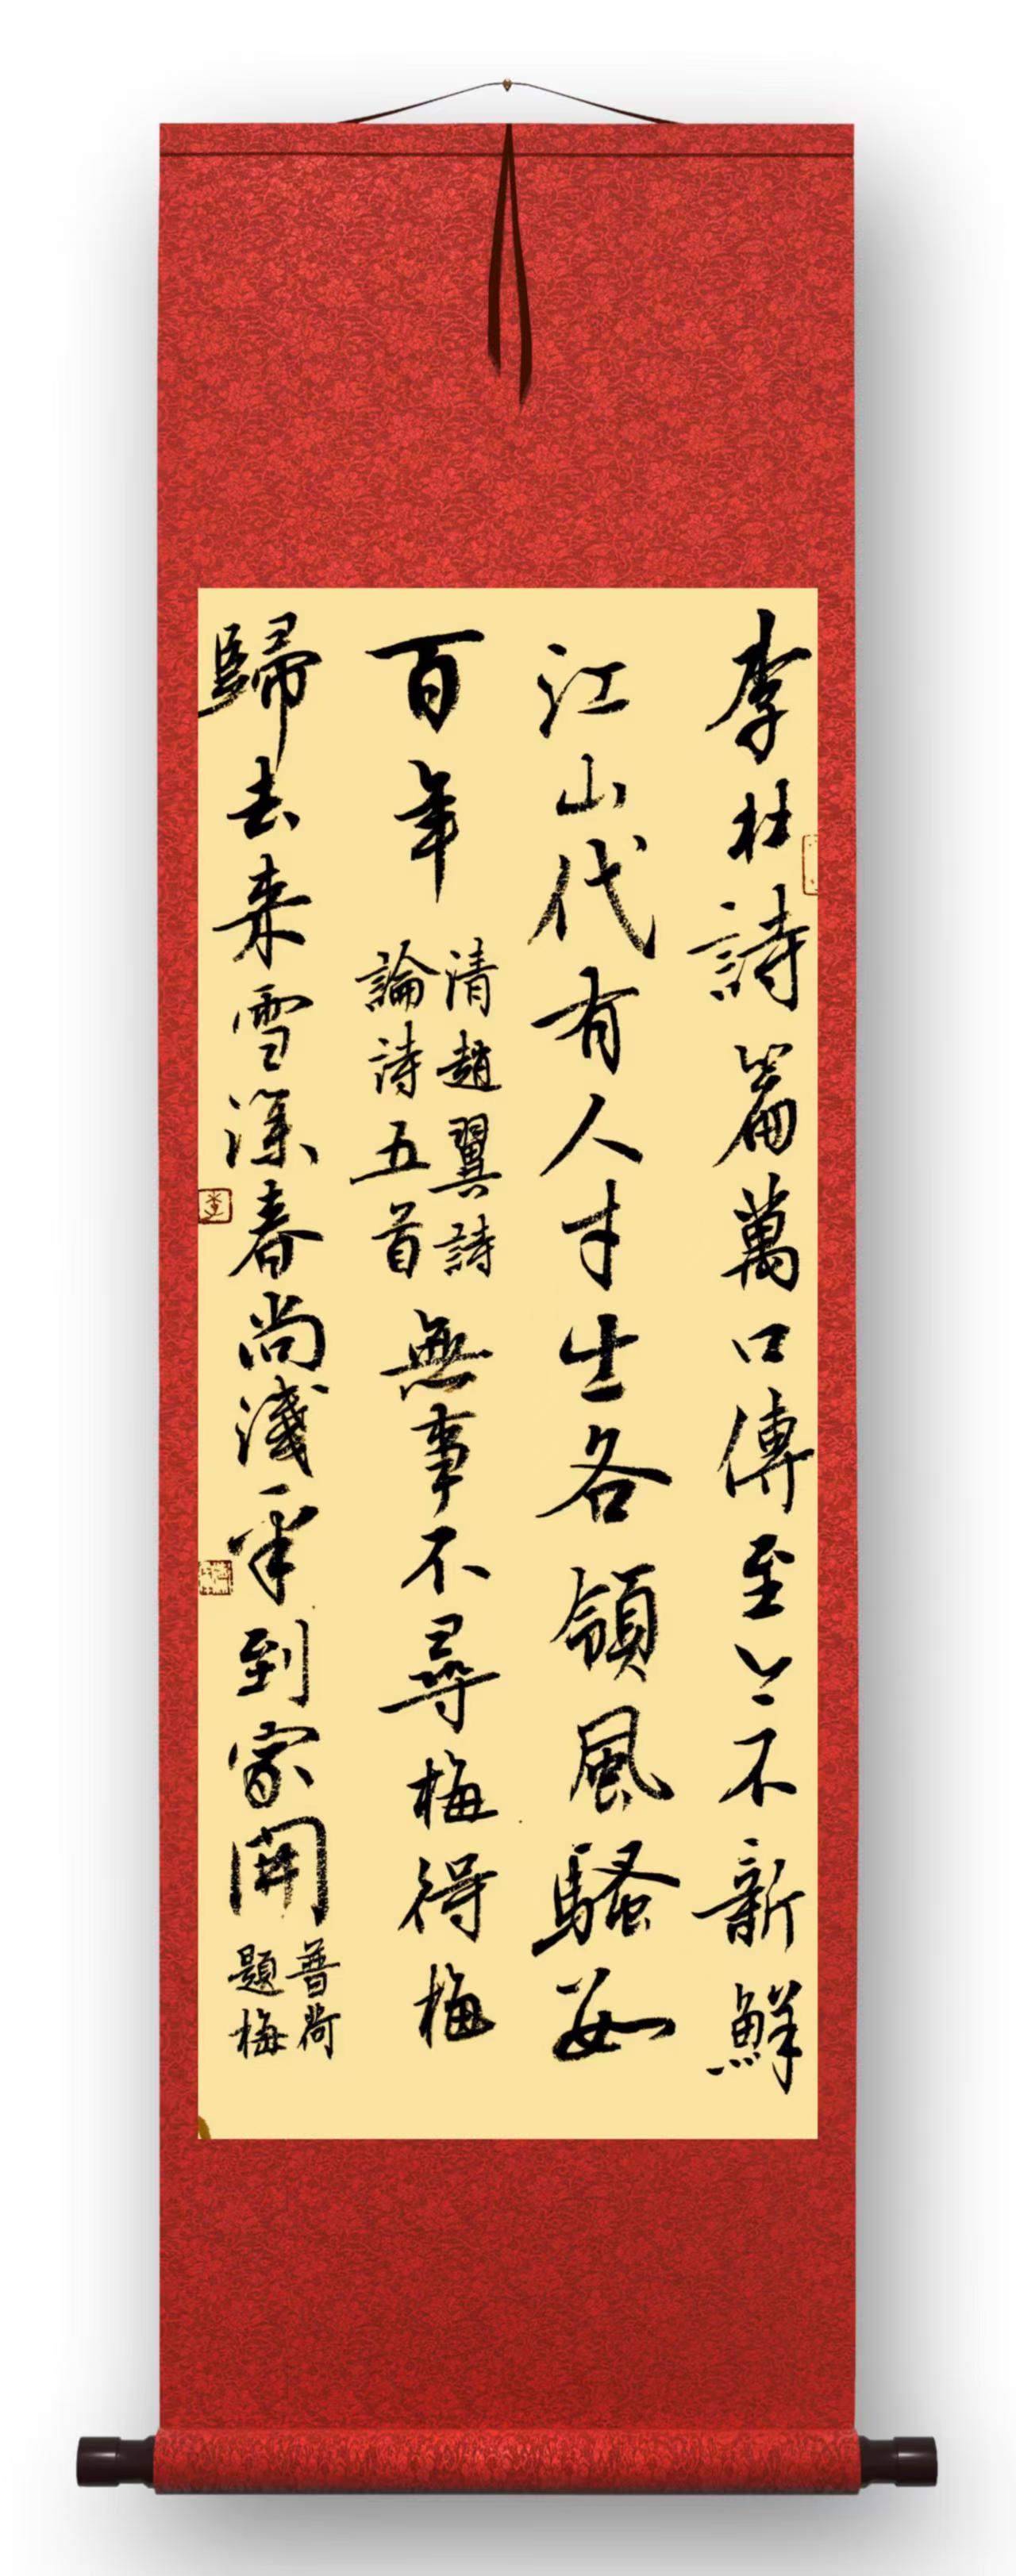 李杜詩篇萬口傳至今不新鮮
江山代有人才出各領風騷數
百年
清趙翼詩
論詩五首
無事不尋梅得梅
歸去来雪深春尚淺一半到家開
普荷
題梅